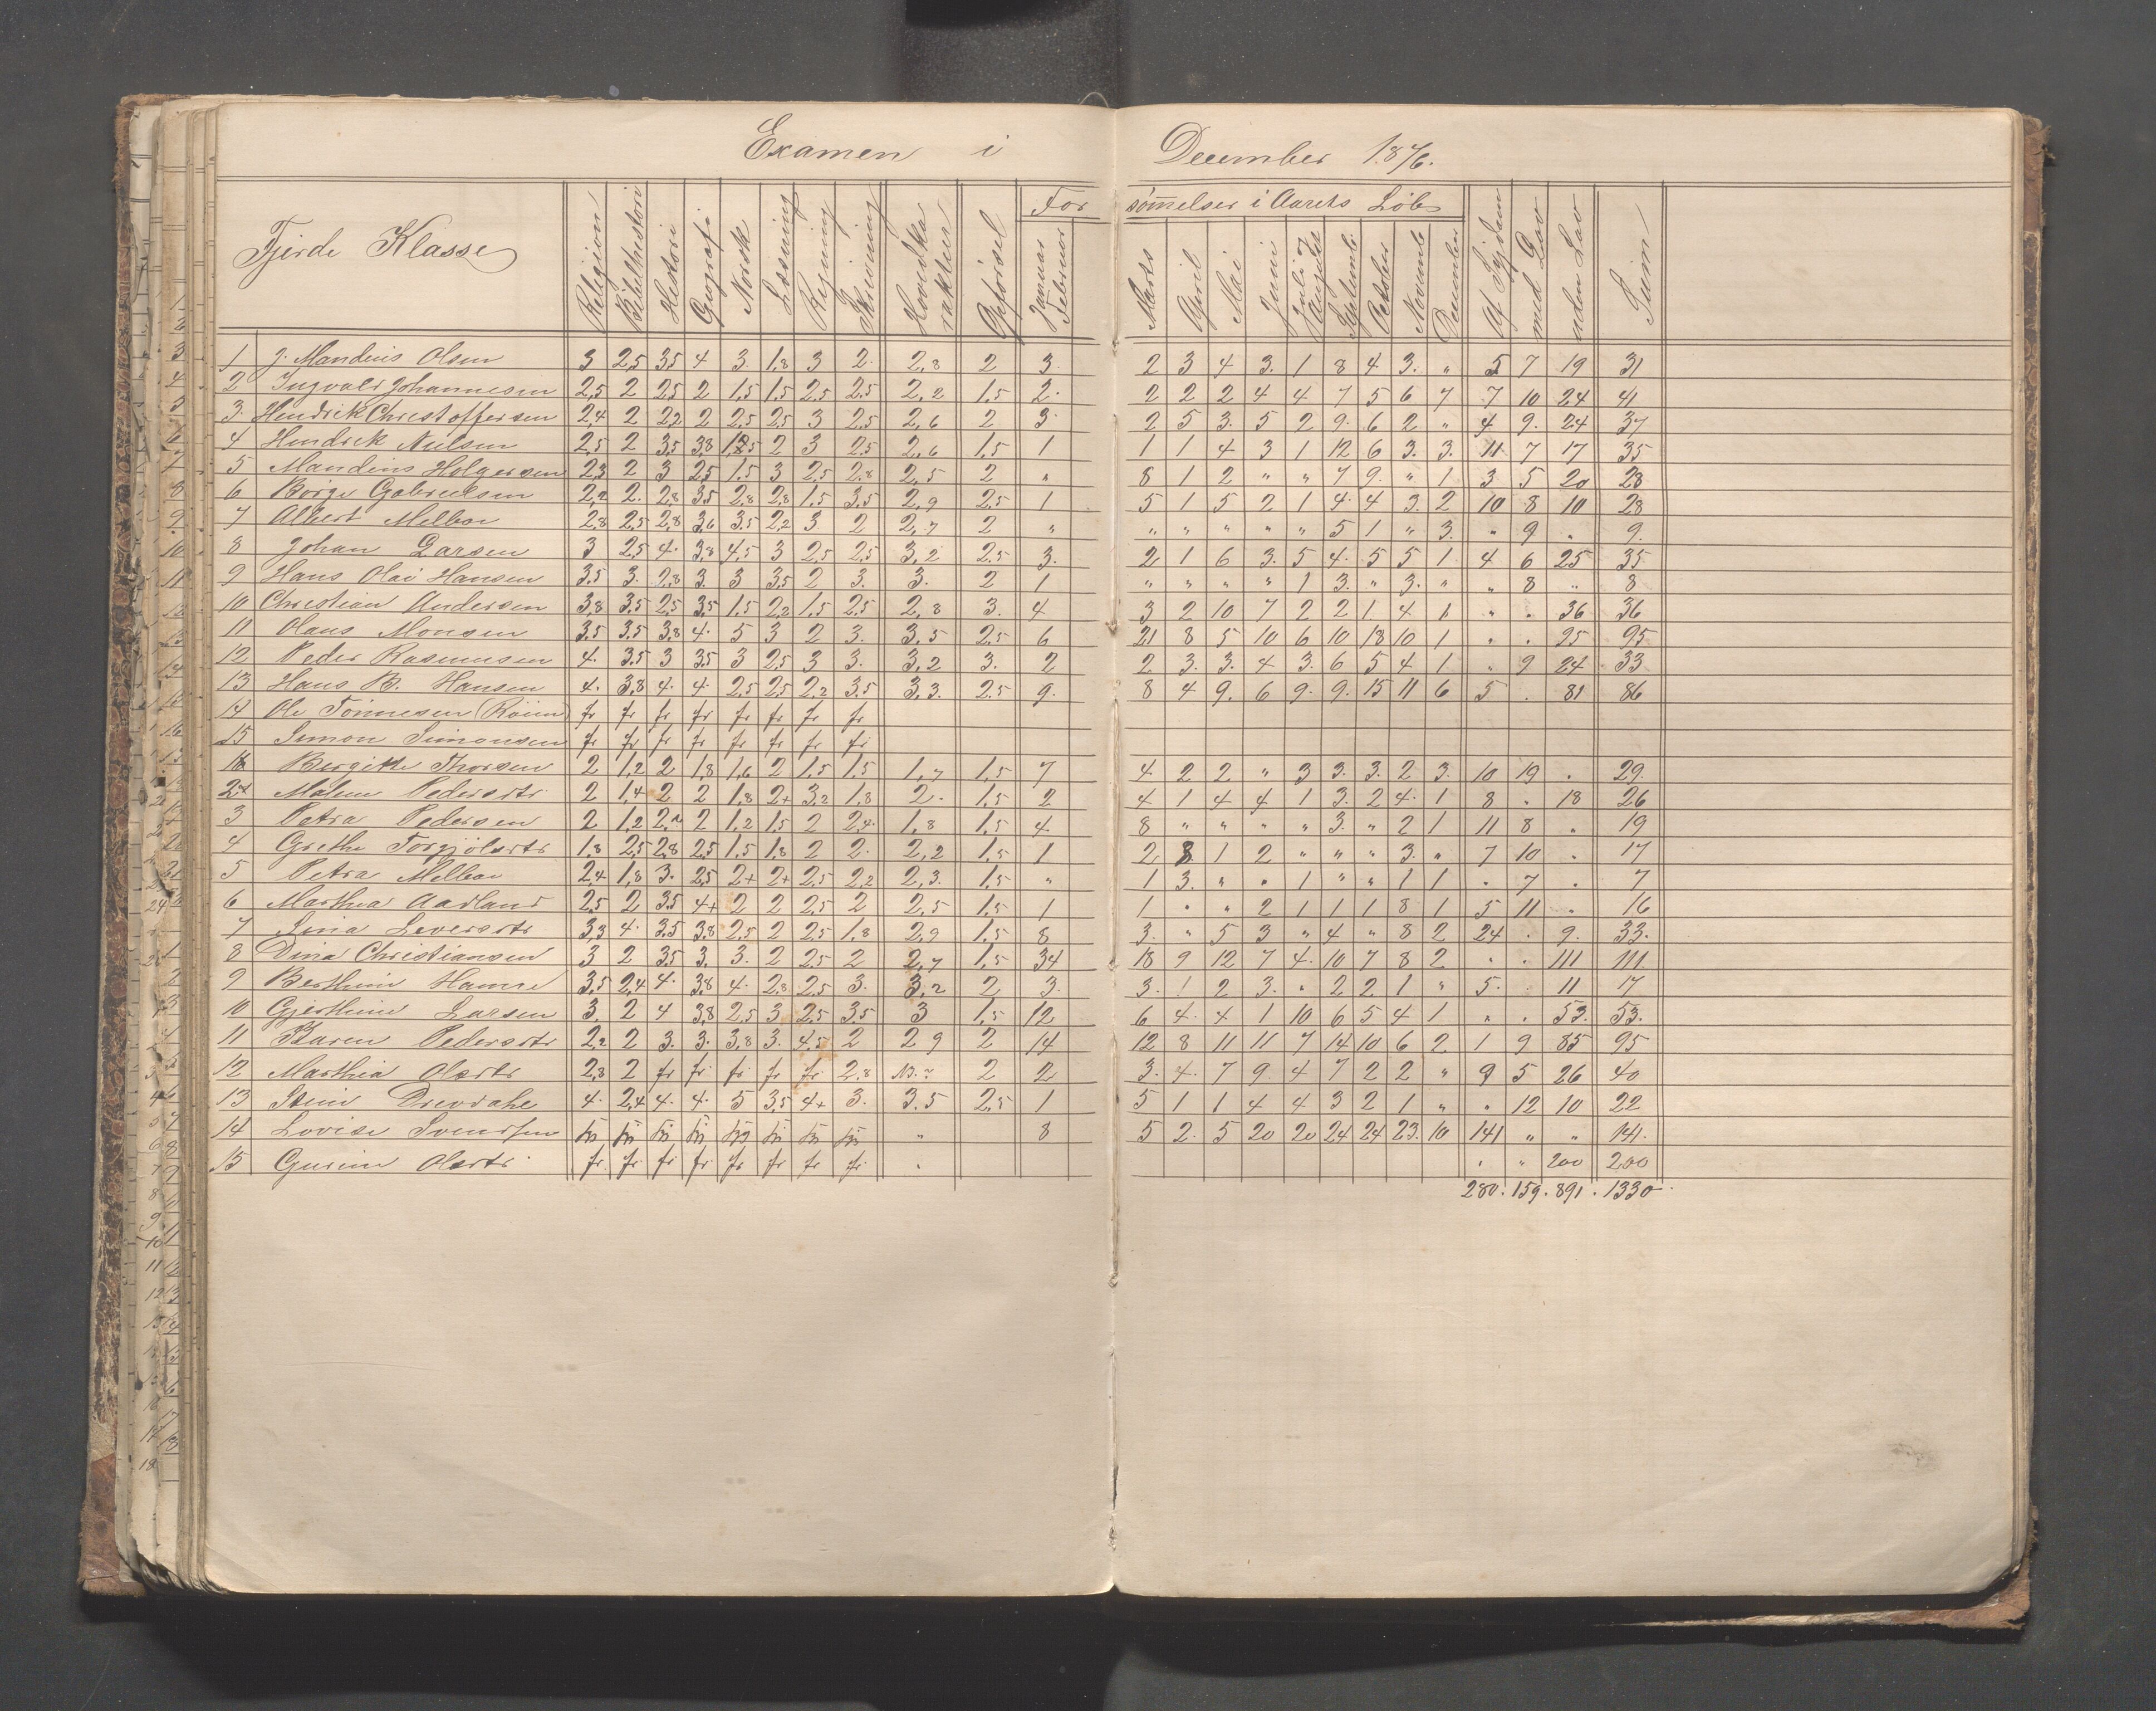 Examen i December 1876.
Fjerde Klasse Religion Bibelhistori Histori Geografi Norsk Læsning Regning Skrivning Hovedka rakter Opførsel Januar Februar Forsømmelser i Aarets Løb Marts April Mai Juni Juli & August Septemb. October Novemb December Af Sygdom med Lov uden Lov Sum
1 J. Mandius Olsen 3 2,5 3,5 4 3 1,8 3 2. 2,8 2 3. 2 3 4 3. 1 8 4 3. " 5 7 19 31
2 Ingvald Johannesen 2,5 2 2,5 2 1,5 1,5 2,5 2,5 2,2 1,5 2. 2 2 2 4 4 7 5 6 7 7 10 24 41
3. Hendrik Christoffersen 2,4 2 2,2 2 2,5 2,5 3 2,5 2,6 2 3. 2 5 3. 5 2 9. 6 2 " 4 9. 24 37
4 Hendrik Nielsen 2,5 2 3,5 3,8 2 3 2,5 2,6 1,5 1 1 1 4 3 1 12 6 3. 3. 11 7 17 35
5 Mandius Holgersen 2,3 2 3 2,5 1,5 3 2,5 2,8 2,5 2 " 8 1 2 " " 7 9. " 1 3 5 20 28
6 Børge Gabrielsen 2,2 2. 2,8 3,5 2,8 2,8 1,5 3,5 2,9 2,5 1 5 1 5 2 1 4. 4 3. 2 10 8 10 28
7 Albert Melbae 2,8 2,5 2,8 3,6 3,5 2,2 3 2 2,7 2 " " " " " " 5 1 " 3. " 9 " 9.
8 Johan Larsen 3 2,5 4. 3,8 4,5 3 2,5 2,5 3,2 2,5 3. 2 1 6 3. 5 4. 5 5 1 4 6 25 35
9 Hans Olai Hansen 3,5 3. 2,8 3. 3 3,5 2 3. 3. 2 1 " " " " 1 3. " 3. " " 8 " 8
10 Christian Andersen 3,8 3,5 2,5 3,5 1,5 2,2 1,5 2,5 2,8 3. 4 3 2 10 7 2 2 1 4 1 " " 36 36
11 Olaus Monsen 3,5 3,5 3,8 4. 5 3 2 3. 3,5 2,5 6 21 8 5 10 6 10 18 10 1 " " 95 95
12 Peder Rasmusen 4. 3,5 3 3,5 3 2,5 3 3. 3,2 3. 2 2 3. 3. 4 3. 6 5 4 1 " 9 24 33
13 Hans B. Hansen 4. 3,8 4. 4. 2,5 2,5 2,2 3,5 3,3. 2,5 9. 8 4 9. 6 9. 9. 15 11 6 5 . 81 86
14 Ole Tønnesen fr fr fr fr fr fr fr fr
15 Simon Simonsen fr fr fr fr fr fr fr fr
1 Bergithe Thorsen 2 1,2 2 1,8 1,6 2 1,5 1,5 1,7 1,5 7 4 2 2 " 3 3. 3. 2 3. 10 19 . 29.
2 Malene Pedersdtr 2 1,4 2 2 1,8 2+ 3,2 1,8 2. 1,5 2 4 1 4 4 1 3. 2 4. 1 8 " 18 26
3 Petra Pedersen 2 1,2 2 1,2 1,5 2 2,4 1,8 1,5 4. 8 " " " " 3. " 2 1 11 8 " 19
4 Grethe Torgjölsdtr 1,8 2,5 2,8 2,5 1,5 1,8 2 2. 2,2 1,5 1 2 3 1 2 " " " 3. " 7 10 . 17
5 Petra Melbae 2,4 1,8 3. 2,5 2+ 2+ 2,5 2,2 2,3. 1,5 " 1 3. " " 1 " " 1 1 " 7 . 7
6 Marthea Aadland 2,5 2 3,5 4+ 2 2 2,5 2 2,5 1,5 1 1 " " 2 1 1 1 8 1 5 11 " 16
7 Sina Seversdtr 3,3 4. 3,5 3,8 2,5 2 2,5 1,8 2,9 1,5 8 3. " 5 3 " 4 " 8 2 24 . 9. 33.
8 Dina Christiansen 3 2 3,5 3. 3. 2 2,5 2 2,7 1,5 34 18 9 12 7 4. 10 7 8 2 " . 111 111
9 Berthine Hamre 3,5 2,4 4. 3,8 4. 2,8 2,5 3. 3,2 2 3. 3. 1 2 3. " 2 2 1 " 5. . 11 17
10 Gjerthine Larsen 3. 2 4 3,8 2,5 3 2,5 3,5 3 1,5 12 6 4. 4 1 10 6 5 4 1 " . 53. 53.
11 Karen Pedersdtr 2,2 2 3. 3. 3,8 3. 4,5 2 2 9 2 14 12 8 11 11 7 14 10 6 2 1 9 85 95
12 Marthia Olsdtr 2,8 2 fr fr fr fr fr 2,8 2 2 3. 4. 7 9. 4 7 2 2 " 9 5 26 40
13 Stine Drevdahl 4. 2,4 4. 4. 5 3,5 4+ 3. 3.5 2,5 1 5 1 1 4 4 3 2 1 " " 12 10 22
14 Lovise Svendsen fri fri fri fri fri fri fri fri " 8 5 2. 5 20 20 24 24 23. 10 141 " " 141.
15 Gurine Olsdtr fr fr fr fr fr fr fr fr " " " 200 200
280. 159. 891. 1330.